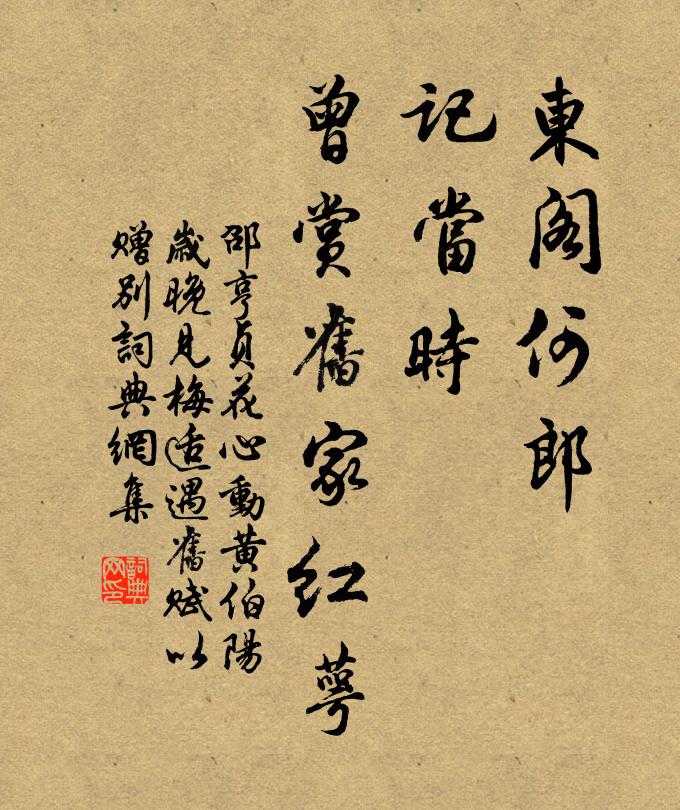 東閣何郎
記當時
曾賞舊家紅萼
邵亨貞花心動黃伯陽
歲晚見梅適遇舊賦以
贈別詞典網集
詞典網印